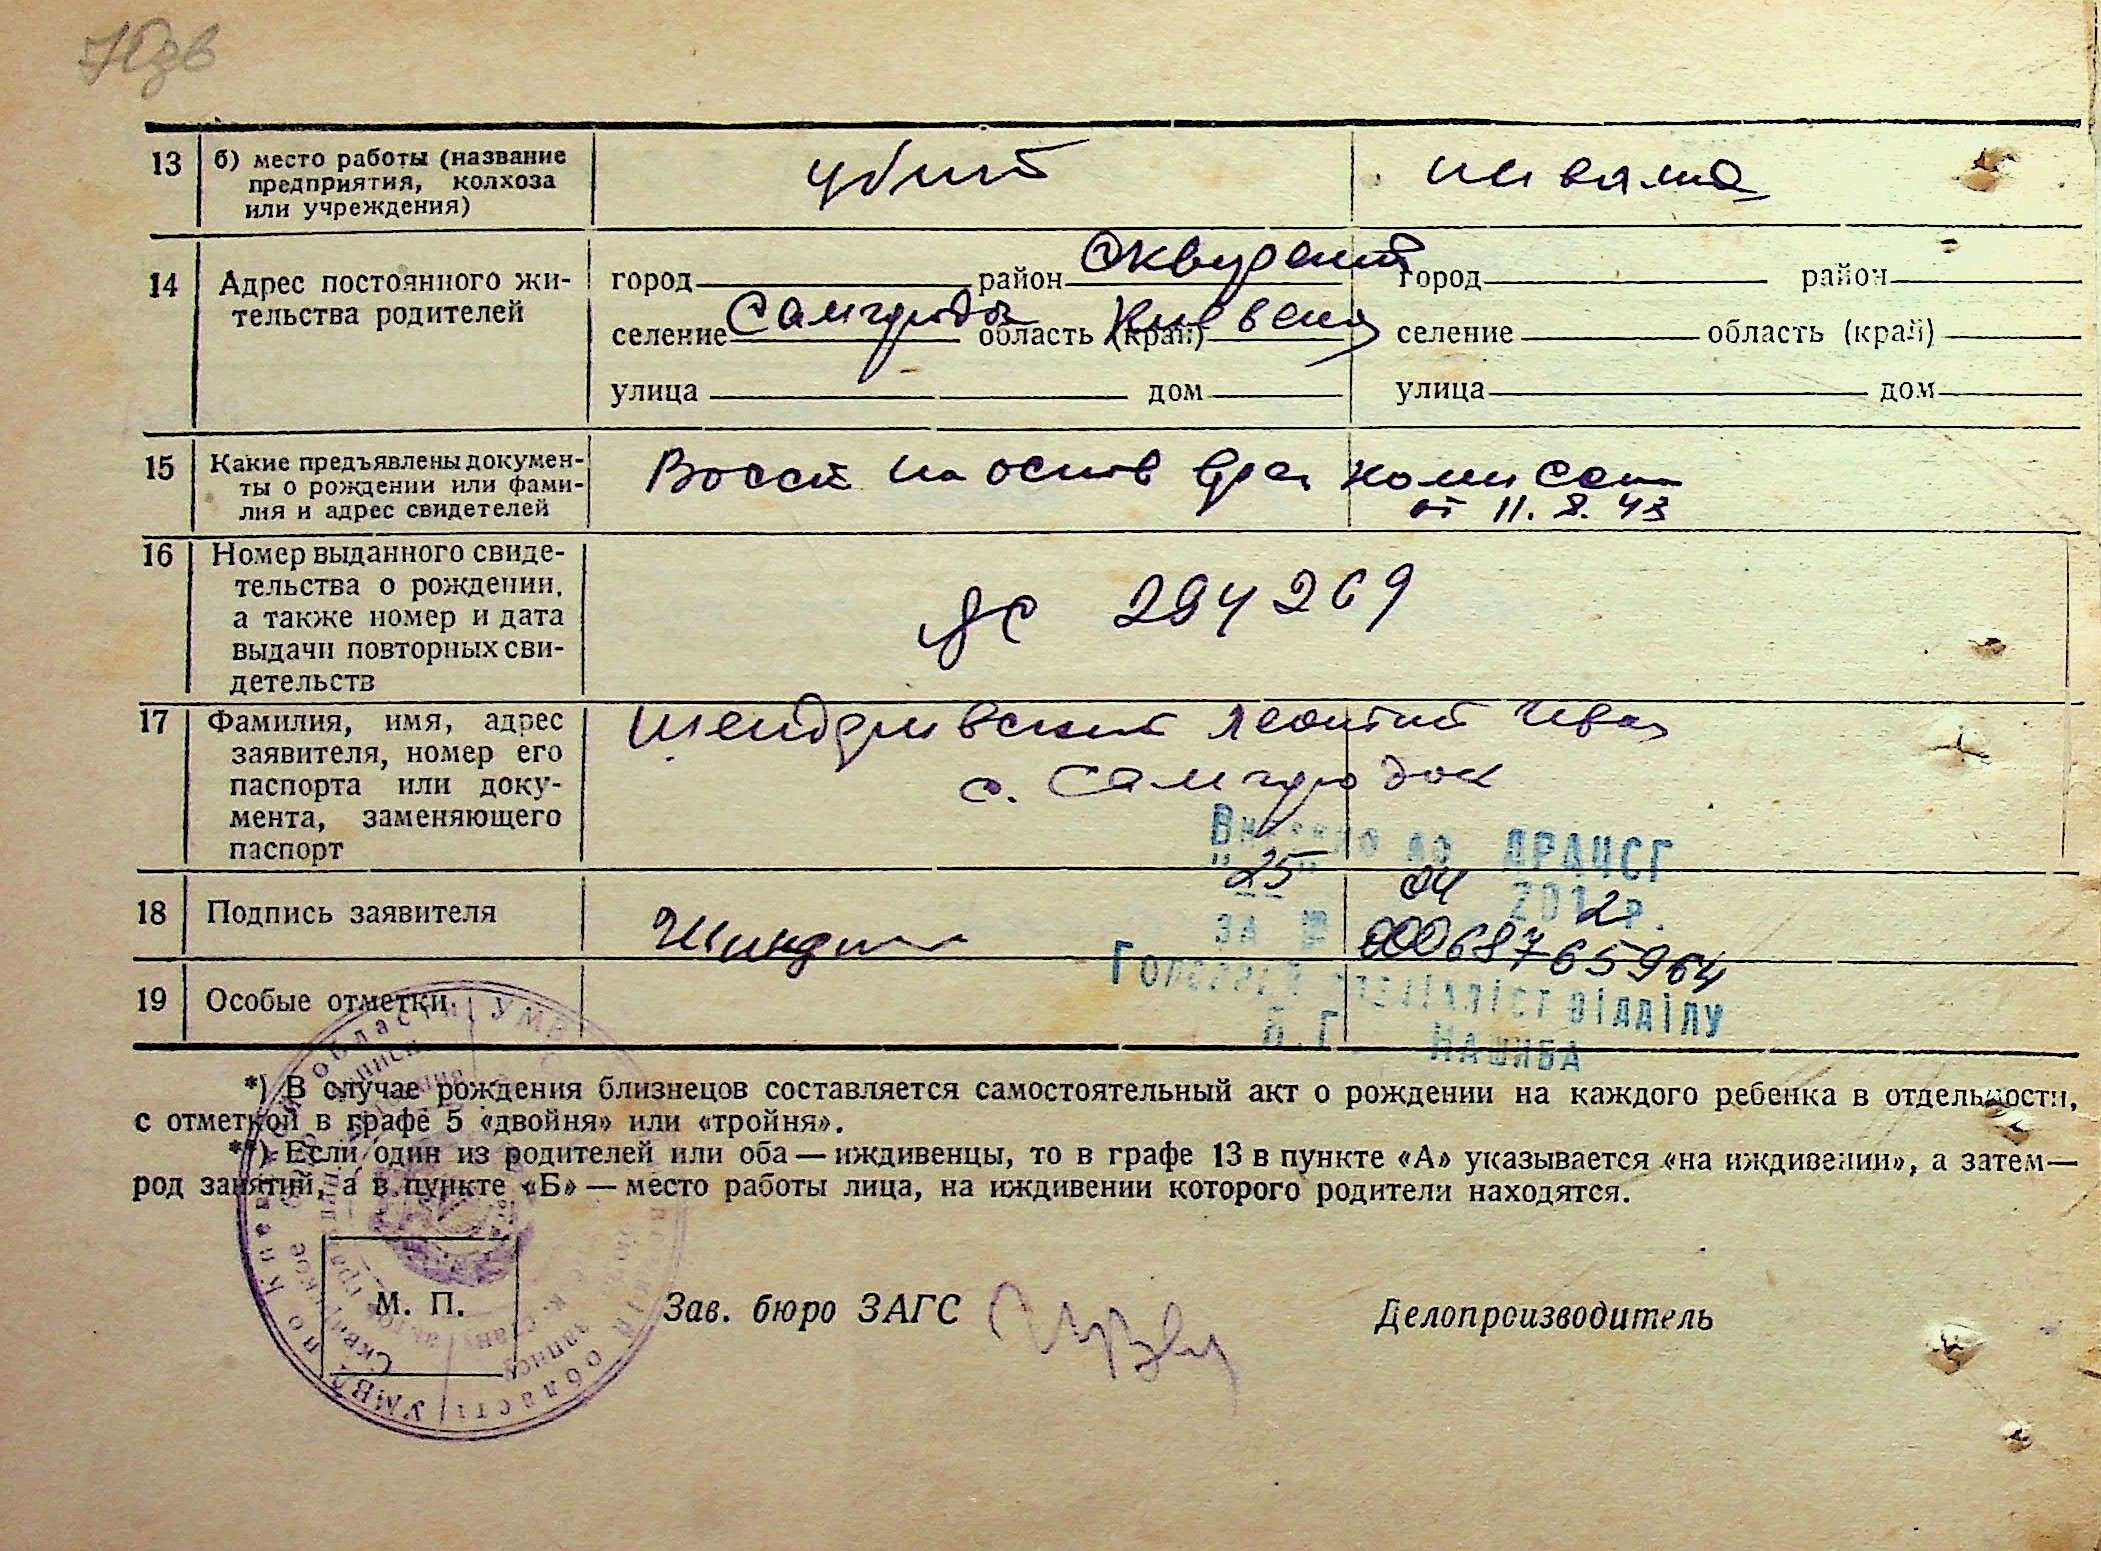 13 б) место работы (название
предприятия, колхоза
или учреждения)
убит
14 Адрес постоянного жи-
тельства родителей
город район Сквирский город район
селение Самгородок область (край) Киевская селение область (край)
улица дом улица дом
15 Какие предъявлены докумен-
ты о рождении или фами-
лия и адрес свидетелей
Восст на основ врач комисси
от 11. 8. 43
16 Номер выданного свиде-
тельства о рождении,
а также номер и дата
выдачи повторных сви-
детельств
294269
17 Фамилия, имя, адрес
заявителя, номер его
паспорта или доку-
мента, заменяющего
паспорт
Леонтий Иван
с. Самгородок
Внесено до ДРАЦСГ
"25" 04 2012 р.
за № 00068765964
Головний спеціаліст відділу
18 Подпись заявителя
19 Особые отметки
*) В случае рождения близнецов составляется самостоятельный акт о рождении на каждого ребенка в отдельности,
с отметкой в графе 5 «двойня» или «тройня».
**) Если один из родителей или оба — иждивенцы, то в графе 13 в пункте «А» указывается «на иждивении», а затем —
род занятий, а в пункте «Б» — место работы лица, на иждивении которого родители находятся.
М. П.
Зав. бюро ЗАГС Делопроизводитель